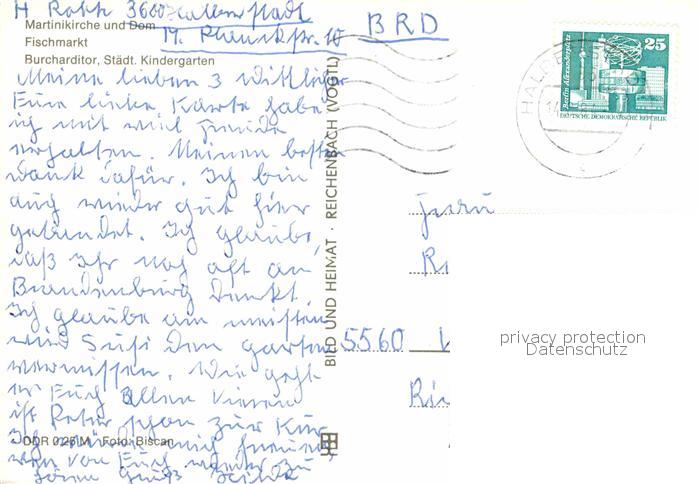 H Rohk 3600 Halberstadt
M. Rhenstr. 10
BRD
Martinikirche und Dom
Fischmarkt
Burcharditor, Städt. Kindergarten
Meine lieben 3 Wittlicher
Eure liebe Karte habe
ich mit viel Freude
erhalten. Meinen besten
Dank dafür. Ich bin
auch wieder gut hier
gelandet. Ich glaube,
daß Ihr noch oft an
Brandenburg denkt.
Ich glaube am meisten
wird Susi den Garten
vermissen. Wie geht
es Euch allen
ist Peter schon zur Kur
Ich mich freuen
wenn von Euch wieder zu
hören Gruß
DDR 0,25 M Foto: Biscan
BILD UND HEIMAT · REICHENBACH (VOGTL)
25
Berlin, Alexanderplatz
DEUTSCHE DEMOKRATISCHE REPUBLIK
HALBERSTADT
14
Frau
5560
privacy protection
Datenschutz